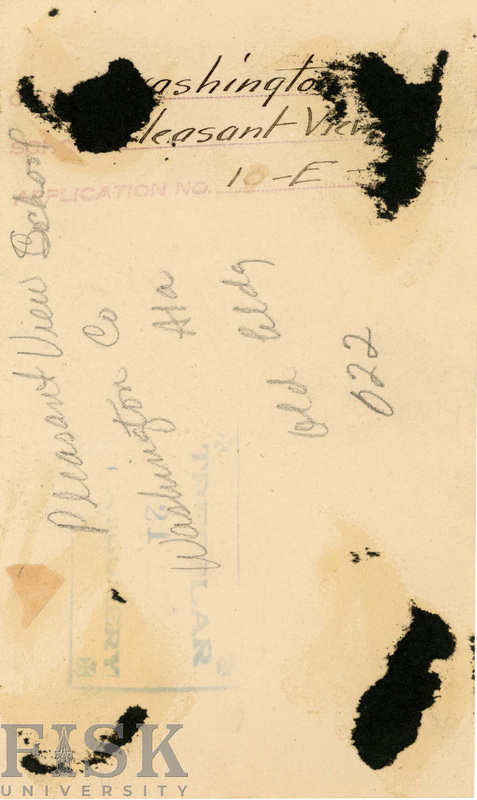 Washington
Pleasant View
10-E-
APPLICATION NO.
Pleasant View School
Washington Co
Ala
Old Bldg
022
FISK
UNIVERSITY